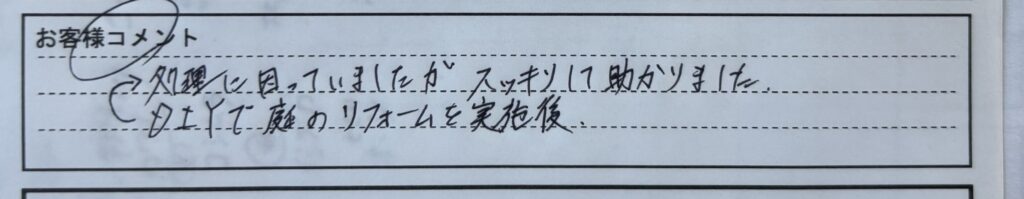 お客様コメント
処理に困っていましたが スッキリして助かりました.
DIYで庭のリフォームを実施後.